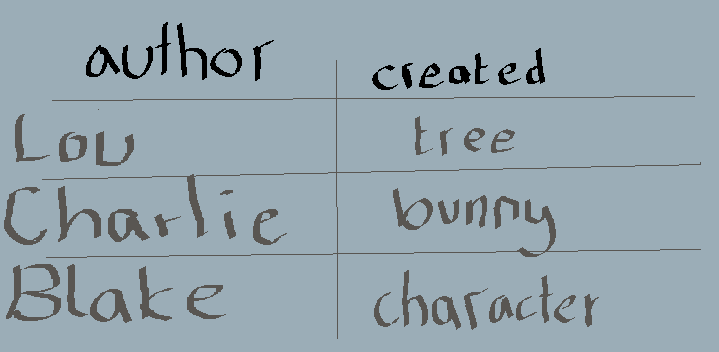 author created
Lou tree
Charlie bunny
Blake character